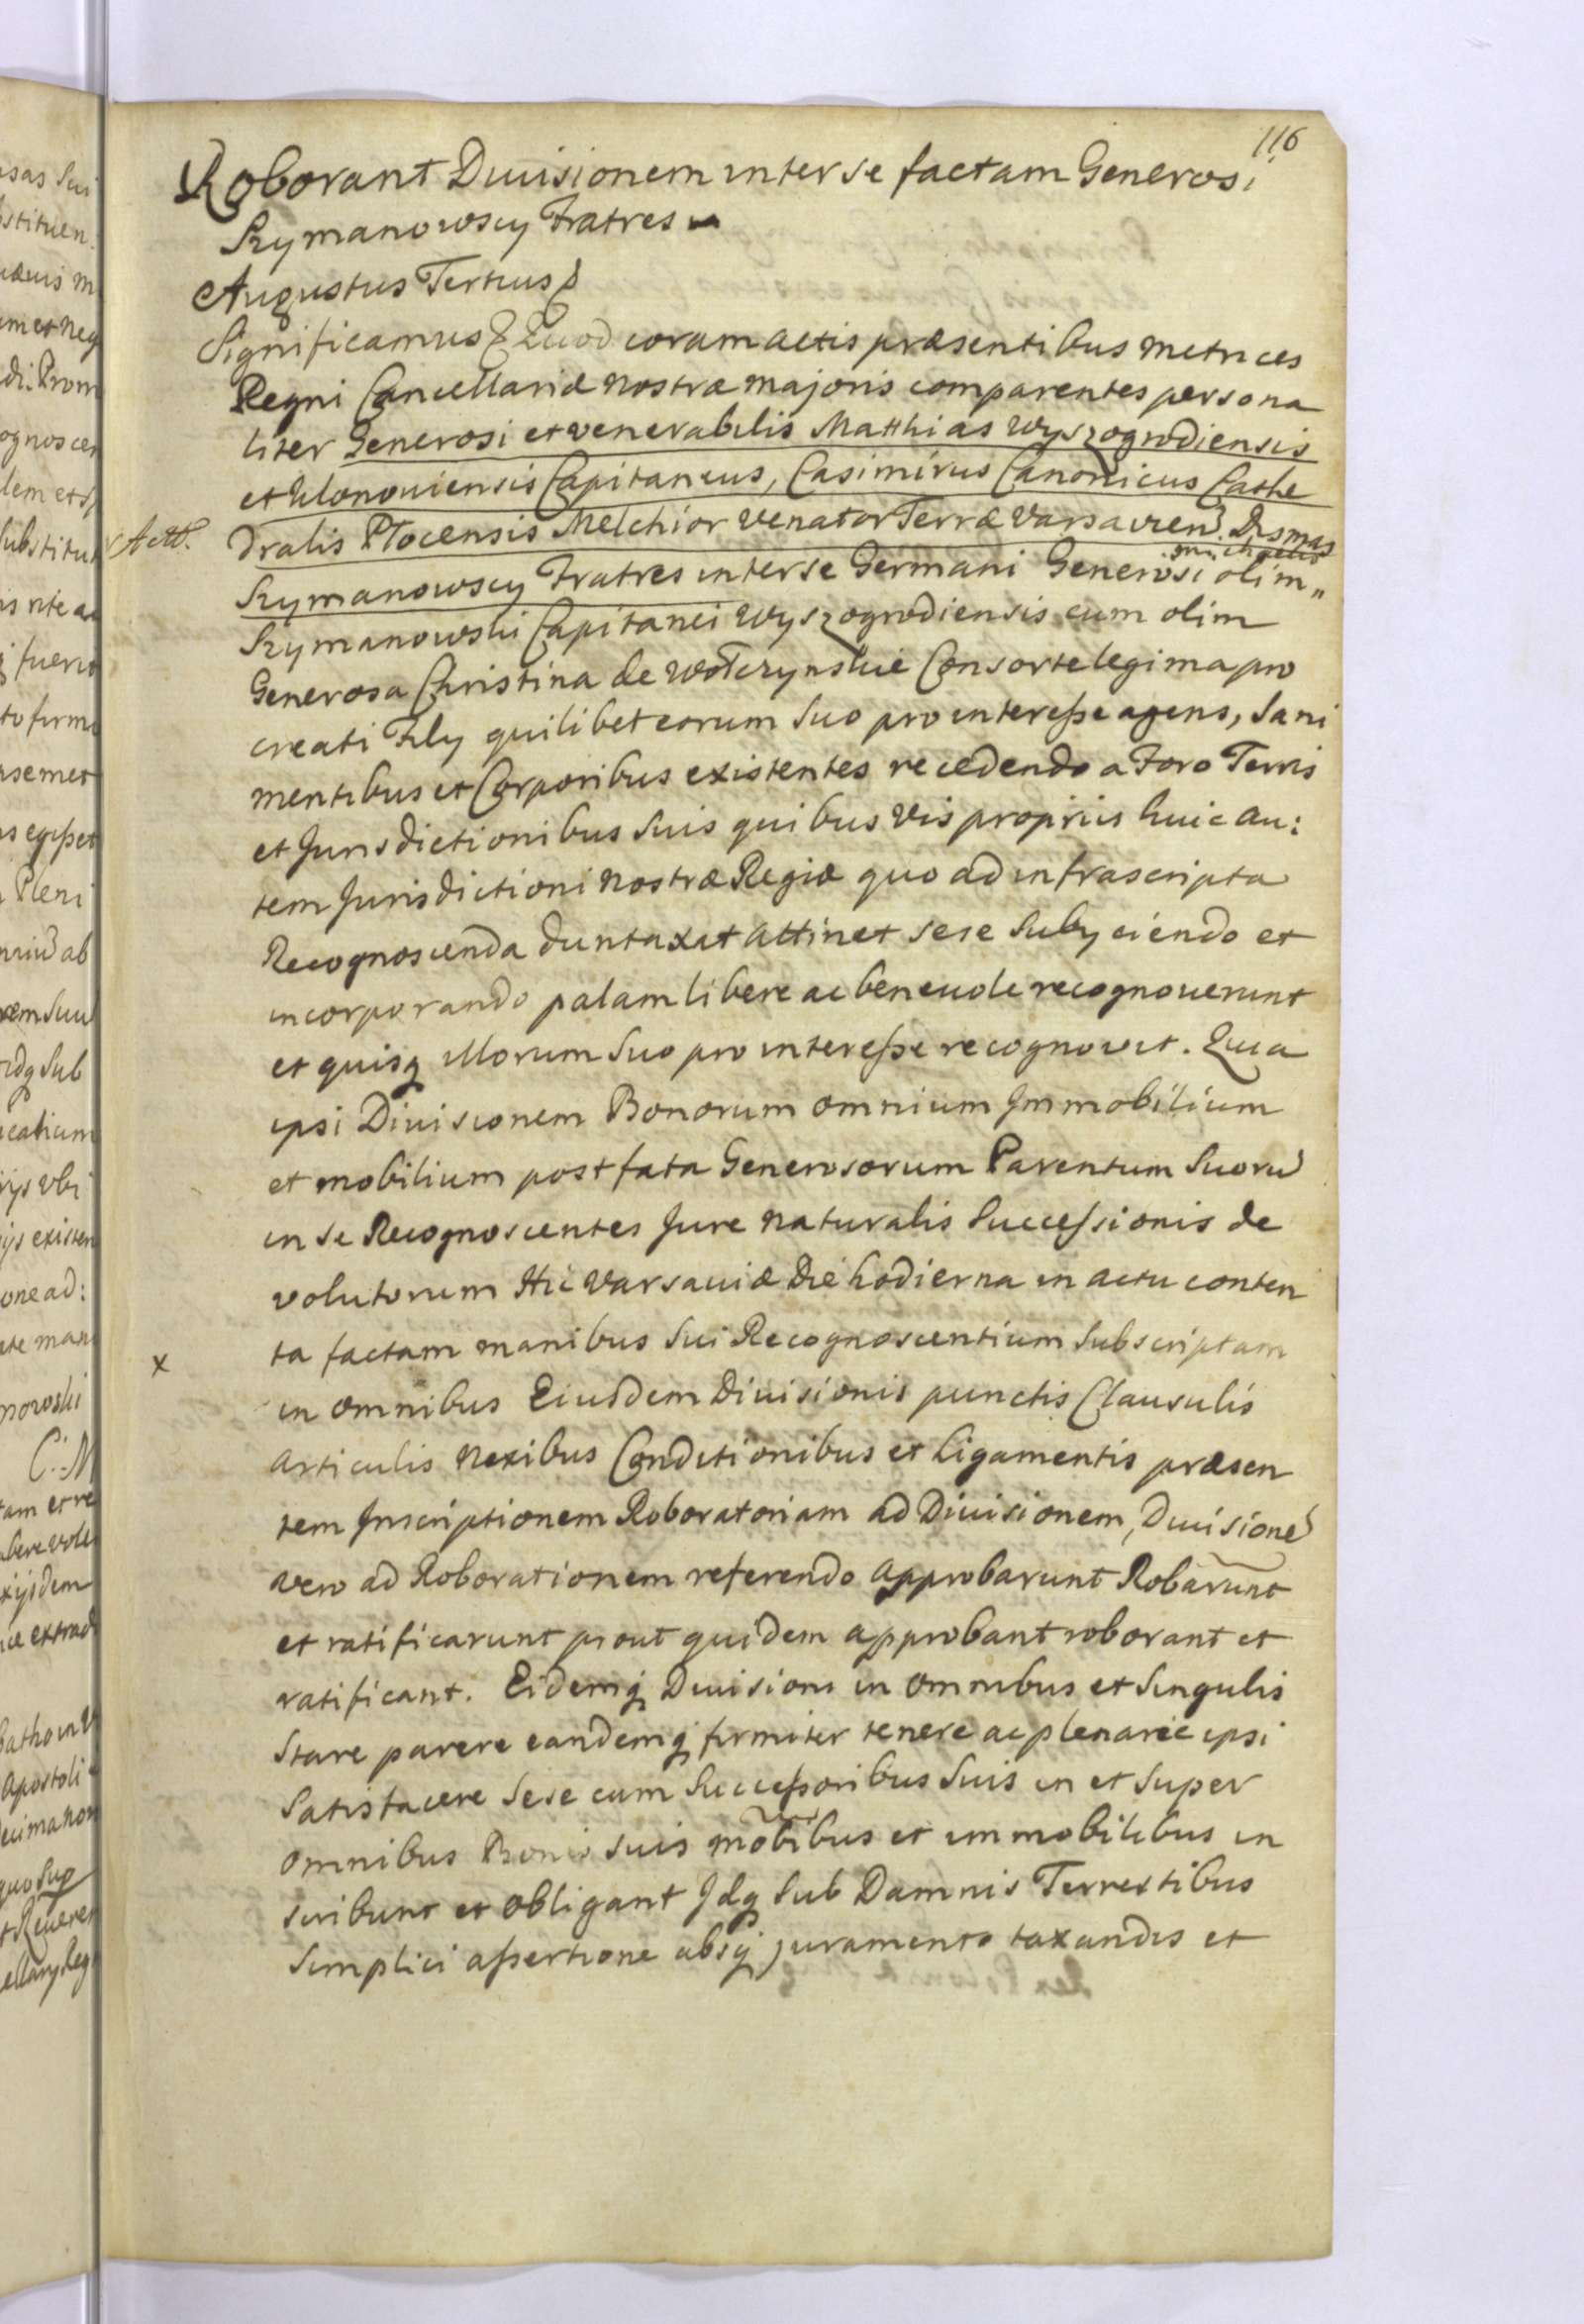 116
Roborant Diuisionem inter se factam Generosi
Szymanowscy Fratres
Augustus Tertius
Significamus Quod coram actis præsentibus metrices
Regni Cancellariæ nostræ majoris comparentes persona
liter Generosi et venerabilis Matthias Wyszogrodiensis
et Klonouiensis Capitaneus, Casimirus Canonicus Cathe
dralis Płocensis Melchior Venator Terræ Varsavien. Dismas
Michaelis
Szymanowscy Fratres inter se Germani Generosi olim
Szymanowski Capitanei Wyszogrodiensis cum olim
Generosa Christina de Wołczynskie Consorte legima pro
creati Fily quilibet eorum suo pro interesse agens, Sani
mentibus et Corporibus existentes recedendo a Foro Terris
et Jurisdictionibus suis quibusvis proprijs huic au:
tem Jurisdictioni nostræ Regiæ quo ad infrascripta
Recognoscenda duntaxat attinet sese subyciendo et
incorporando palam libere ac beneuole recognouerunt
et quisq illorum suo pro interesse recognovit. Quia
ipsi Diuisionem Bonorum omnium Immobilium
et mobilium post fata Generosorum Parentum suoru
in se Recognoscentes Jure naturalis Successionis de
volutorum Hic Varsauiæ Die hodierna in actu conten
x
ta factam manibus sui Recognoscentium subscriptam
in omnibus Eiusdem Diuisionis punctis Clausulis
articulis nexibus Conditionibus et Ligamentis præsen
tem Inscriptionem Roboratoriam ad Diuisionem, Diuisione
vero ad Roborationem referendo approbarunt Robarunt
et ratificarunt prout quidem approbant roborant et
ratificant. Eidemq Diuisioni in omnibus et singulis
stare parere eandemq firmiter tenere ac plenarie ipsi
satisfacere sese cum Successoribus suis in et super
omnibus Bonis suis mobibus et immobilibus in
scribunt et obligant Idq sub Damnis Terrestibus
simplici assertione absq juramento taxandis et